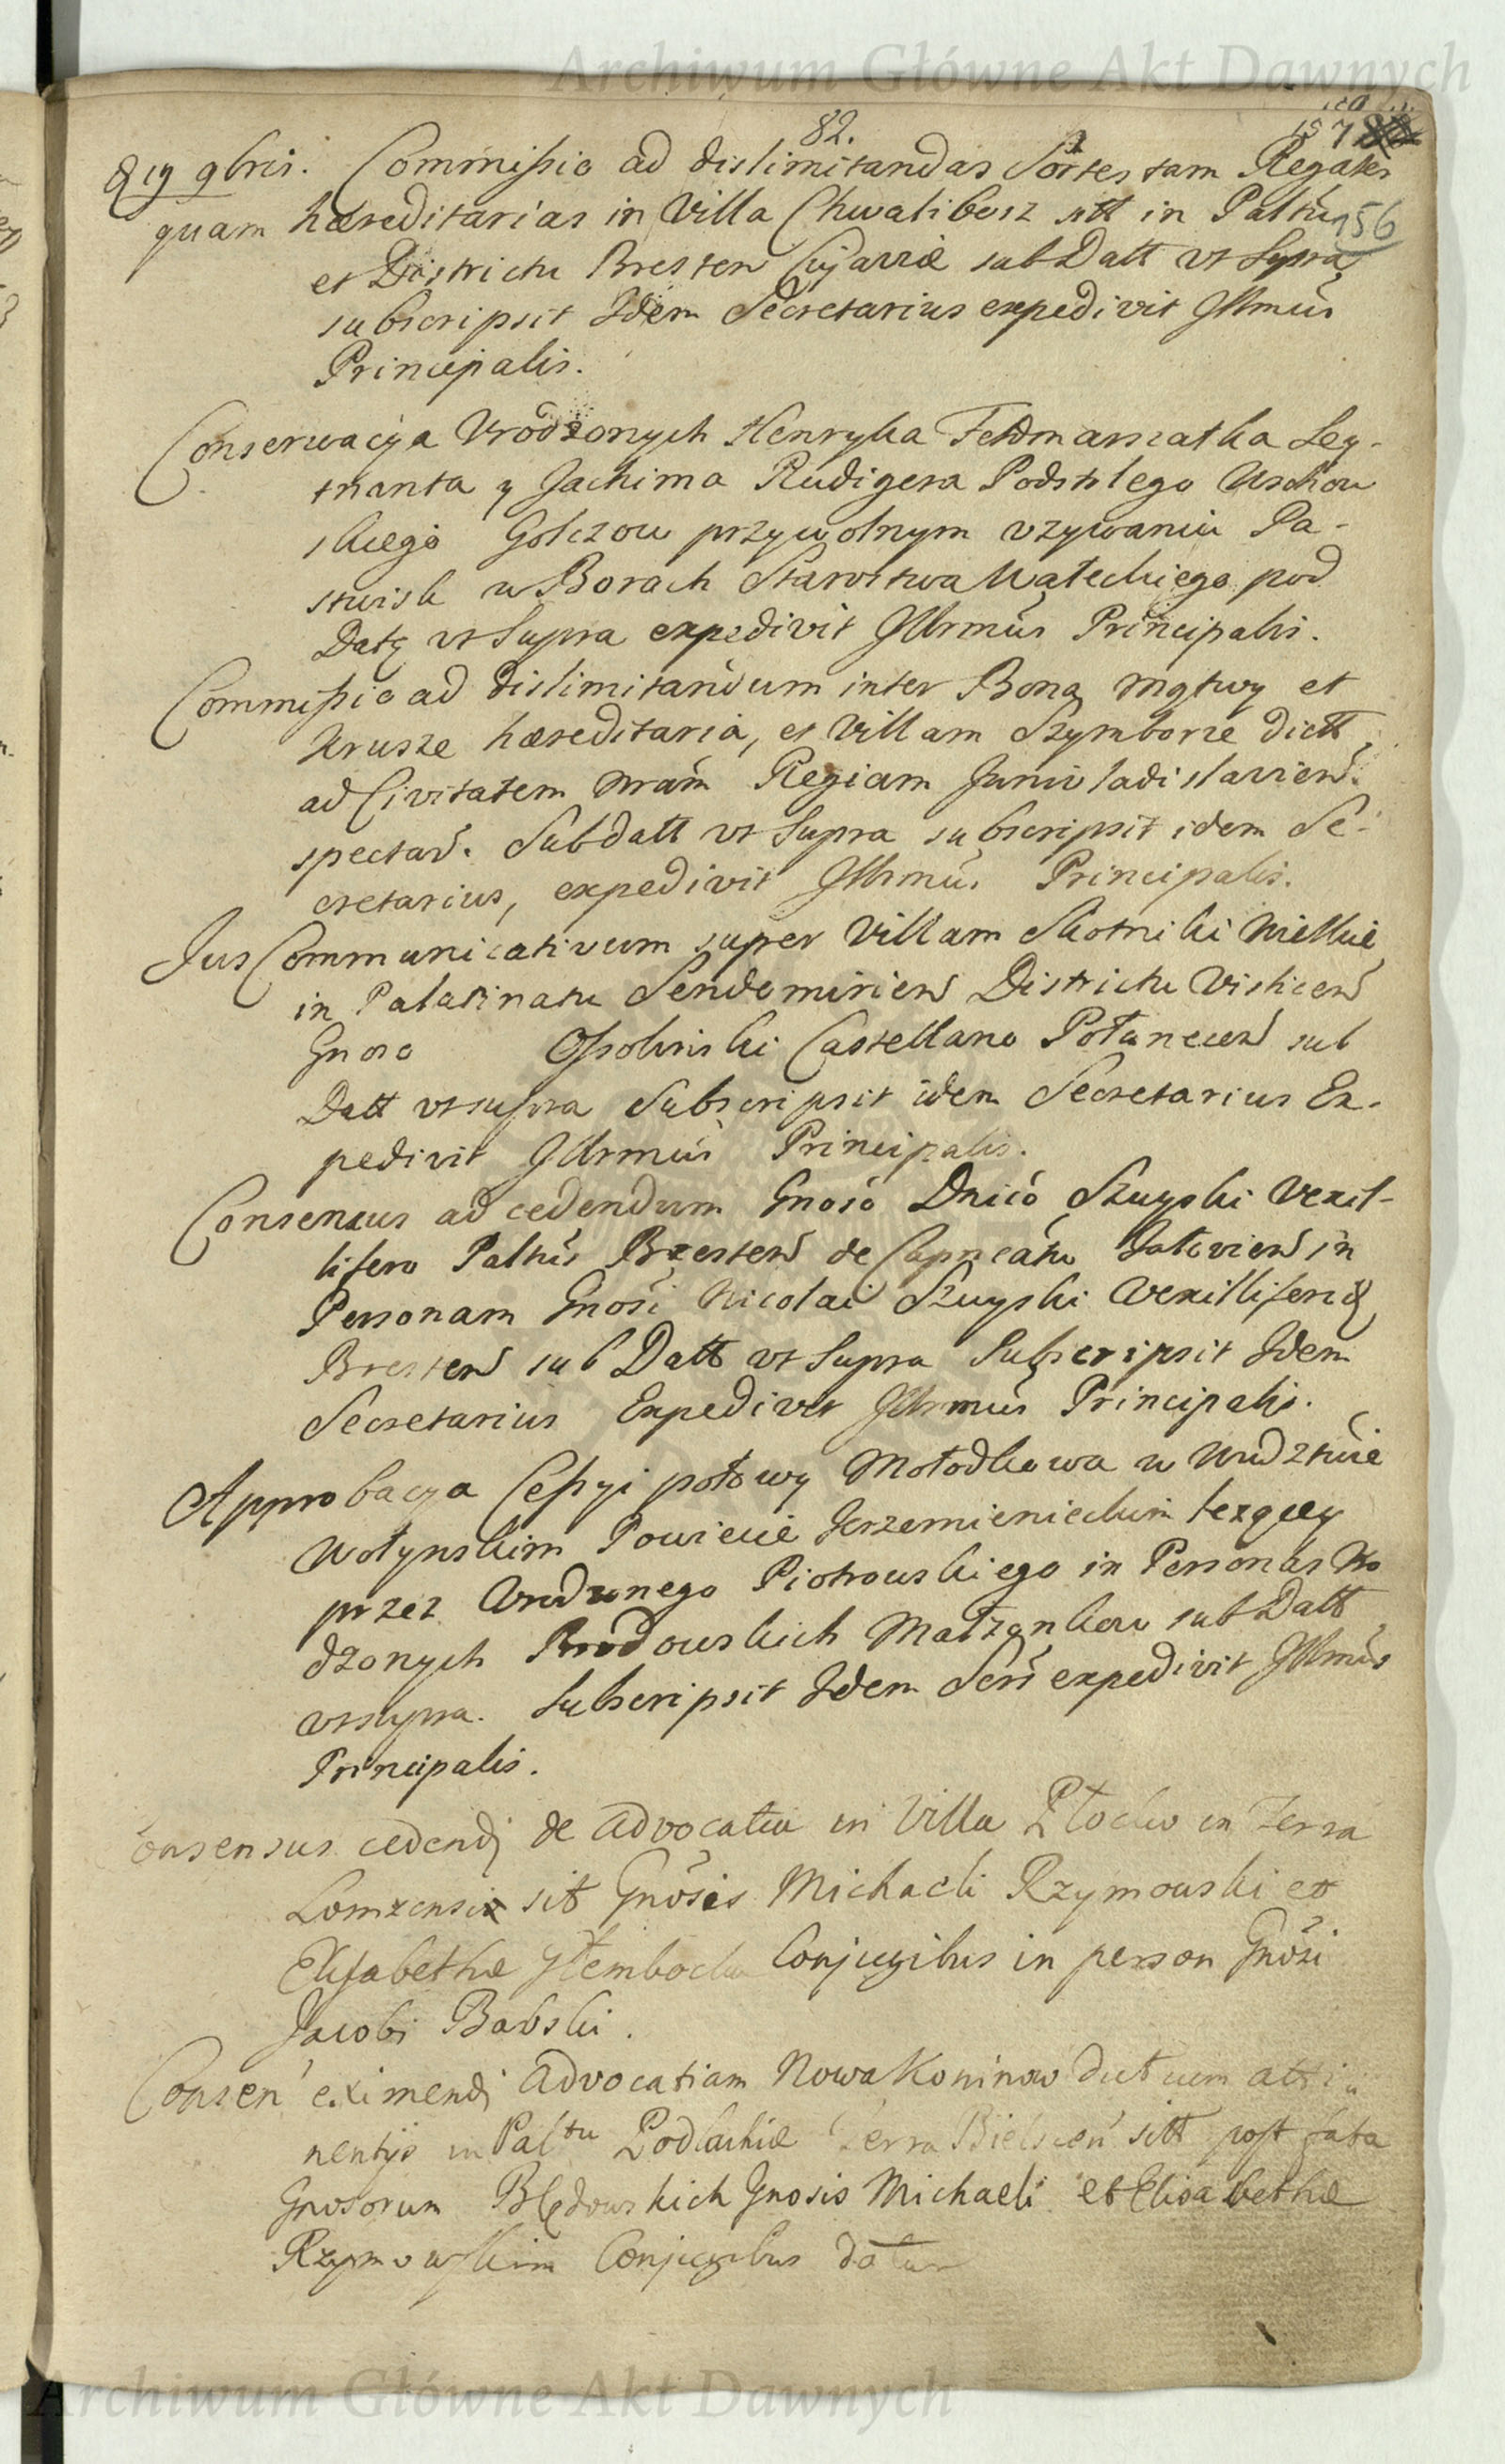 Archiwum Główne Akt Dawnych
82.
157
156
19 9bris. Commissio ad dislimitandas Sortes tam Regales
quam hæreditarias in Villa Chwalibosz sitt in Paltu
et Districtu Bresten Cujaviæ sub Datt vt Supra
subscripsit Idem Secretarius expedivit Illmus
Principalis.
Conserwacya Vrodzonych Henryka Feldmarszałka Ley-
tnanta y Jachima Rudigera Podstolego Wschow
skiego Golczow przy wolnym vzywaniu Pa-
stwisk w Borach Starostwa Wałeckiego pod
Datą vt Supra expedivit Illrmus Principalis.
Commissio ad dislimitandum inter Bona Mątwy et
Krusze hæreditaria, et Villam Szymborze dictt
ad Civitatem nram Regiam Juniwladislavien
spectan. Sub datt vt Supra subscripsit idem Se-
cretarius, expedivit Illrmus Principalis.
Jus Communicativum super Villam Skotniki Wielkie
in Palatinatu Sendomirien Districtu Visticen
Gnoso Ossolinski Castellano Połanecen sub
Datt vt supra Subscripsit idem Secretarius Ex-
pedivit Illrmus Principalis.
Consensus ad cedendum Gnoso Dnico Szuyski Vexil-
lifero Paltus Brzesten de Capneatu Jatovien in
Personam Gnosi Nicolai Szuyski Vexilliferidæ
Bresten sub Datt vt Supra Subscripsit Idem
Secretarius Expedivit Illrmus Principalis.
Approbacya Cessyi połowy Mołodkowa w Wudztwie
Wołynskim Powiecie Krzemienieckim lezącey
przez Vrodzonego Piotrowskiego in Personas Vro
dzonych Brodowskich Małzonkow sub Datt
vt supra. Subscripsit Idem Seris expedivit Illmus
Principalis.
Consensus cedendi de advocatia in Villa Ptocho in Terra
Lomzensi sit Gnosis Michaeli Rzymowski et
Elisabethæ Głembocka Conjugibus in person Gnosi
Jacobi Babski.
Consen eximendi advocatiam Nowa Koninow dict cum atti
nentijs in Paltu Podlachiæ Terra Bielscen sitt post fata
Gnosorum Błędowskich Gnosis Michaeli et Elisabethæ
Rzymowskim Conjugibus datur
Archiwum Główne Akt Dawnych